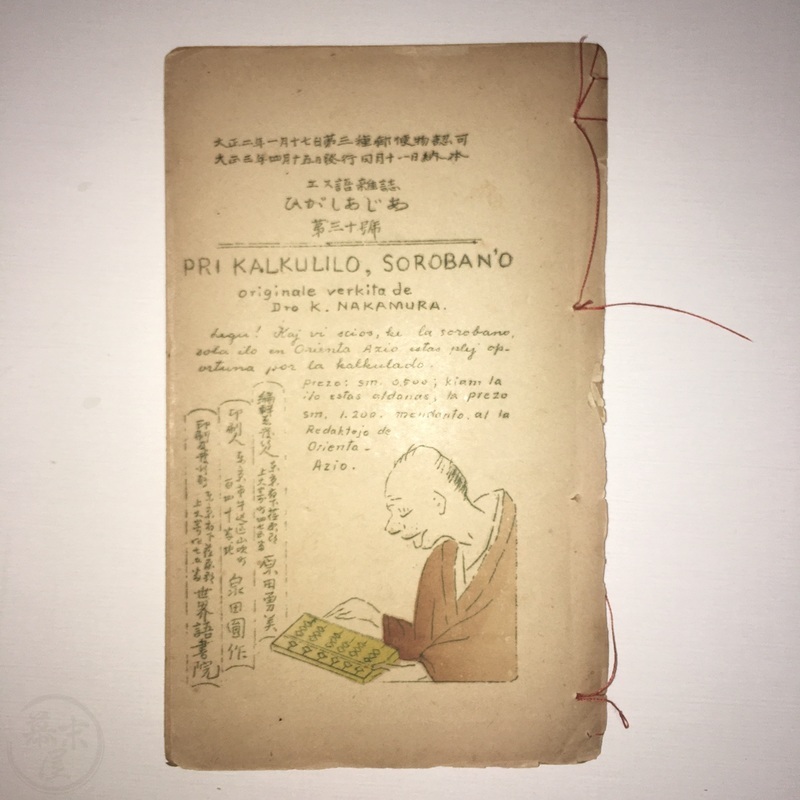 大正二年一月十七日第三種郵便物認可
大正三年四月十五日發行 同月十一日納本
エス語雜誌
ひがしあじあ
第三十號
PRI KALKULILO, SOROBAN'O
originale verkita de
Dro K. NAKAMURA.
Legu! Kaj vi scios, ke la sorobano,
sola ilo en Orienta Azio estas plej op-
ortuna por la kalkulado.
prezo: sm. 0.500; kiam la
ilo estas aldonas, la prezo
sm. 1.200. mendonto, al la
Redaktejo de
Orienta-
Azio.
編輯兼發行人
原田勇美
印刷人 東京市牛込區山吹町
泉田圃作
世界語書院
幕末屋